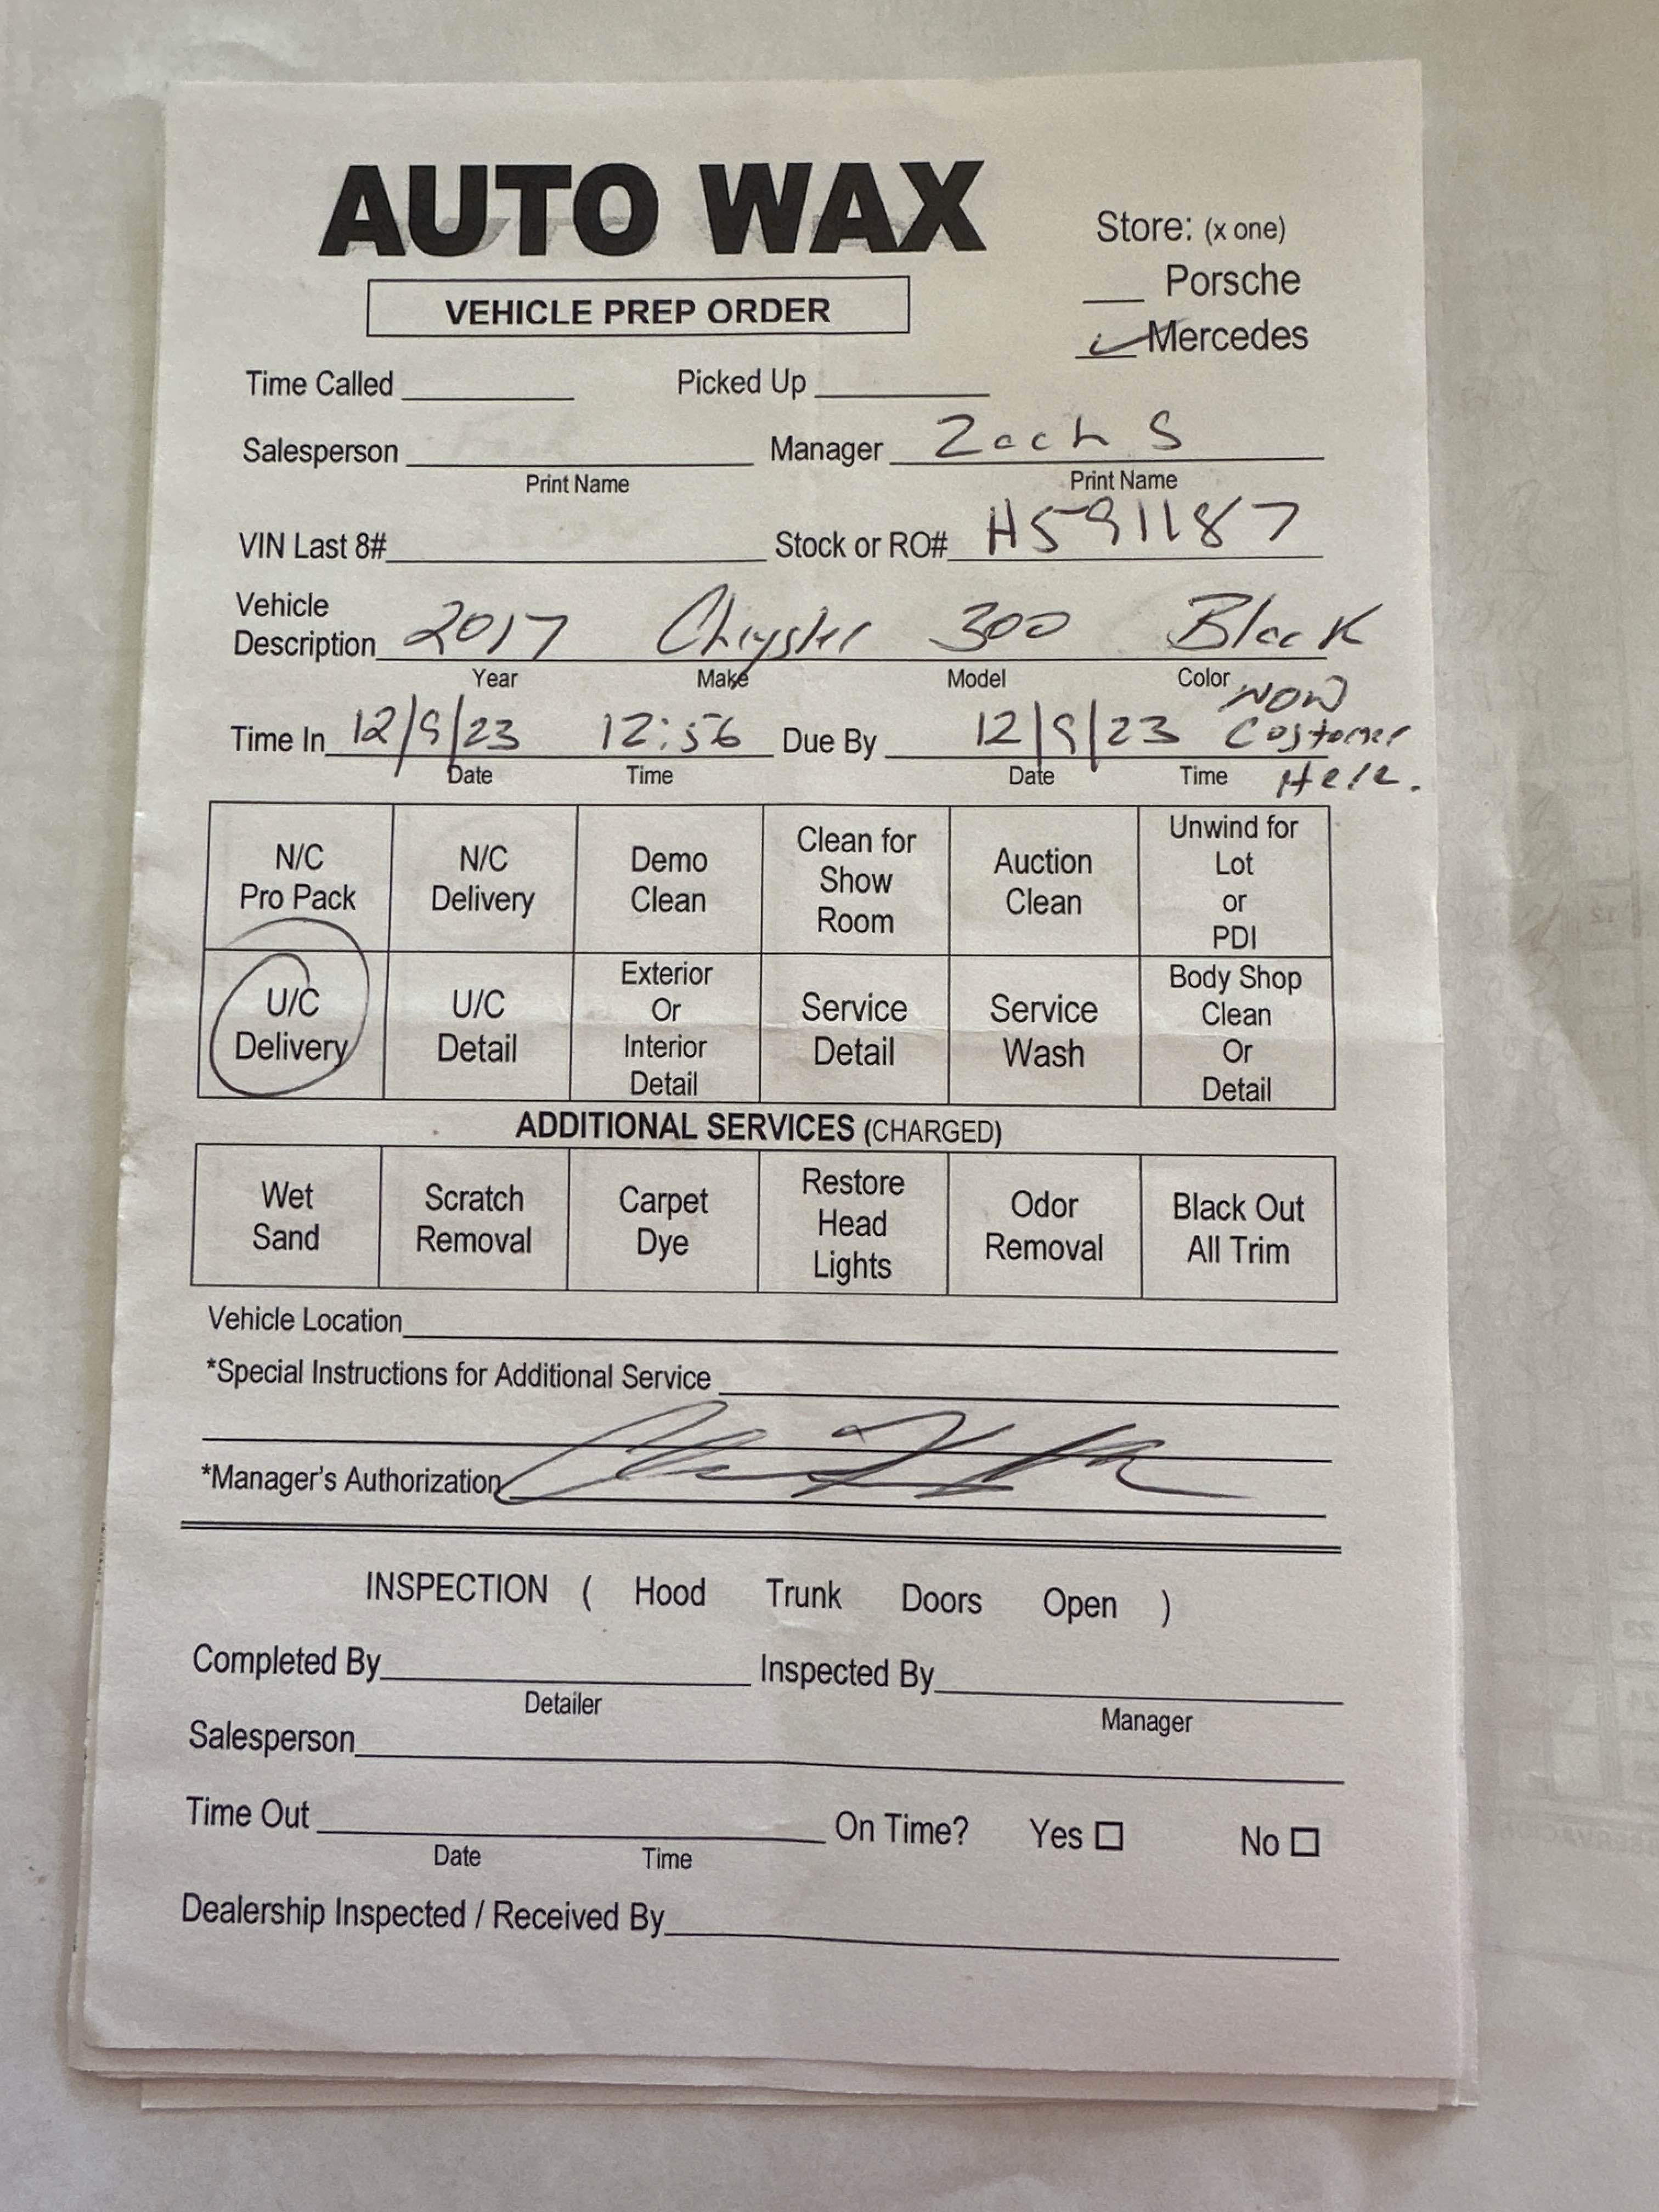 AUTO WAX
Store: (x one)
VEHICLE PREP ORDER
___ Porsche
✓ Mercedes
Time Called ______ Picked Up ______
Salesperson ______ Manager Zach S
Print Name Print Name
VIN Last 8# ______ Stock or RO# H591187
Vehicle
Description 2017 Chrysler 300 Black
Year Make Model Color
Time In 12/9/23 12:56 Due By 12/9/23 NOW Costomer Here.
Date Time Date Time
N/C Pro Pack
N/C Delivery
Demo Clean
Clean for Show Room
Auction Clean
Unwind for Lot or PDI
U/C Delivery
U/C Detail
Exterior Or Interior Detail
Service Detail
Service Wash
Body Shop Clean Or Detail
ADDITIONAL SERVICES (CHARGED)
Wet Sand
Scratch Removal
Carpet Dye
Restore Head Lights
Odor Removal
Black Out All Trim
Vehicle Location
*Special Instructions for Additional Service
*Manager's Authorization
INSPECTION ( Hood Trunk Doors Open )
Completed By ______ Inspected By ______
Detailer Manager
Salesperson
Time Out ______ On Time? Yes ☐ No ☐
Date Time
Dealership Inspected / Received By